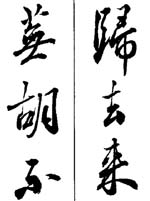 歸去来
蕪胡不